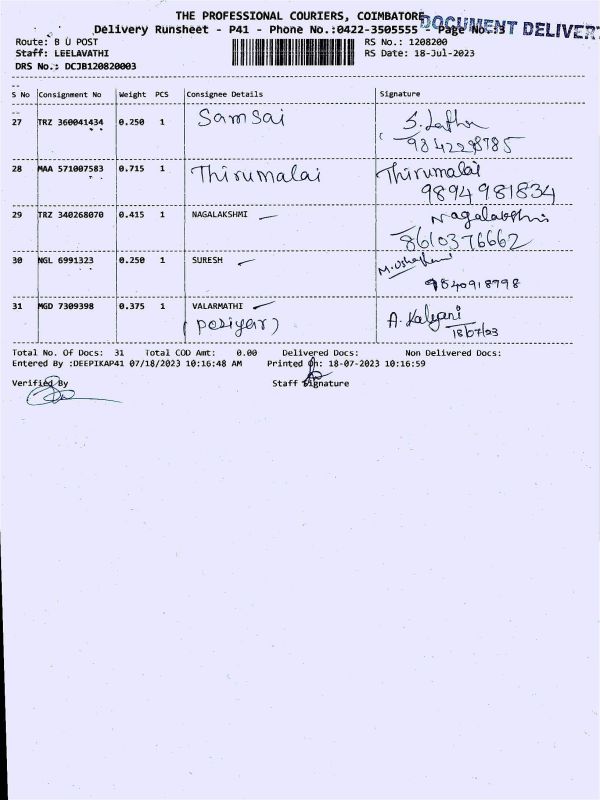 THE PROFESSIONAL COURIERS, COIMBATORE
DOCUMENT DELIVER
Delivery Runsheet - P41 - Phone No.:0422-3505555 Page No.:3
Route: B U POST RS No.: 1208200
Staff: LEELAVATHI RS Date: 18-Jul-2023
DRS No.: DCJB120820003
S No Consignment No Weight PCS Consignee Details Signature
27 TRZ 360041434 0.250 1 Samsai S. Latha
9842298785
28 MAA 571007583 0.715 1 Thirumalai Thirumalai
9894 981834
29 TRZ 340268070 0.415 1 NAGALAKSHMI Nagalakshmi
8610376662
30 NGL 6991323 0.250 1 SURESH
9840918798
31 MGD 7309398 0.375 1 VALARMATHI A. Kalyani
(posiyar) 18/07/23
Total No. Of Docs: 31 Total COD Amt: 0.00 Delivered Docs: Non Delivered Docs:
Entered By :DEEPIKAP41 07/18/2023 10:16:48 AM Printed On: 18-07-2023 10:16:59
Verified By Staff Signature